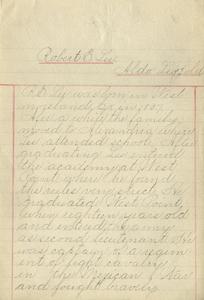 Robert E. Lee
Aldo
R. E. Lee was born in West
moreland, Va. in 1807.
After a while the family
moved to Alexandria where
Lee attended school. After
graduating Lee entered
the academy at West
Point where he found
the rules very strict. He
graduated West Point
when eighteen years old
and entered the army
as second lieutenant. He
was captain of a regim
ent of light cavalry
in the Mexican War
and fought bravely